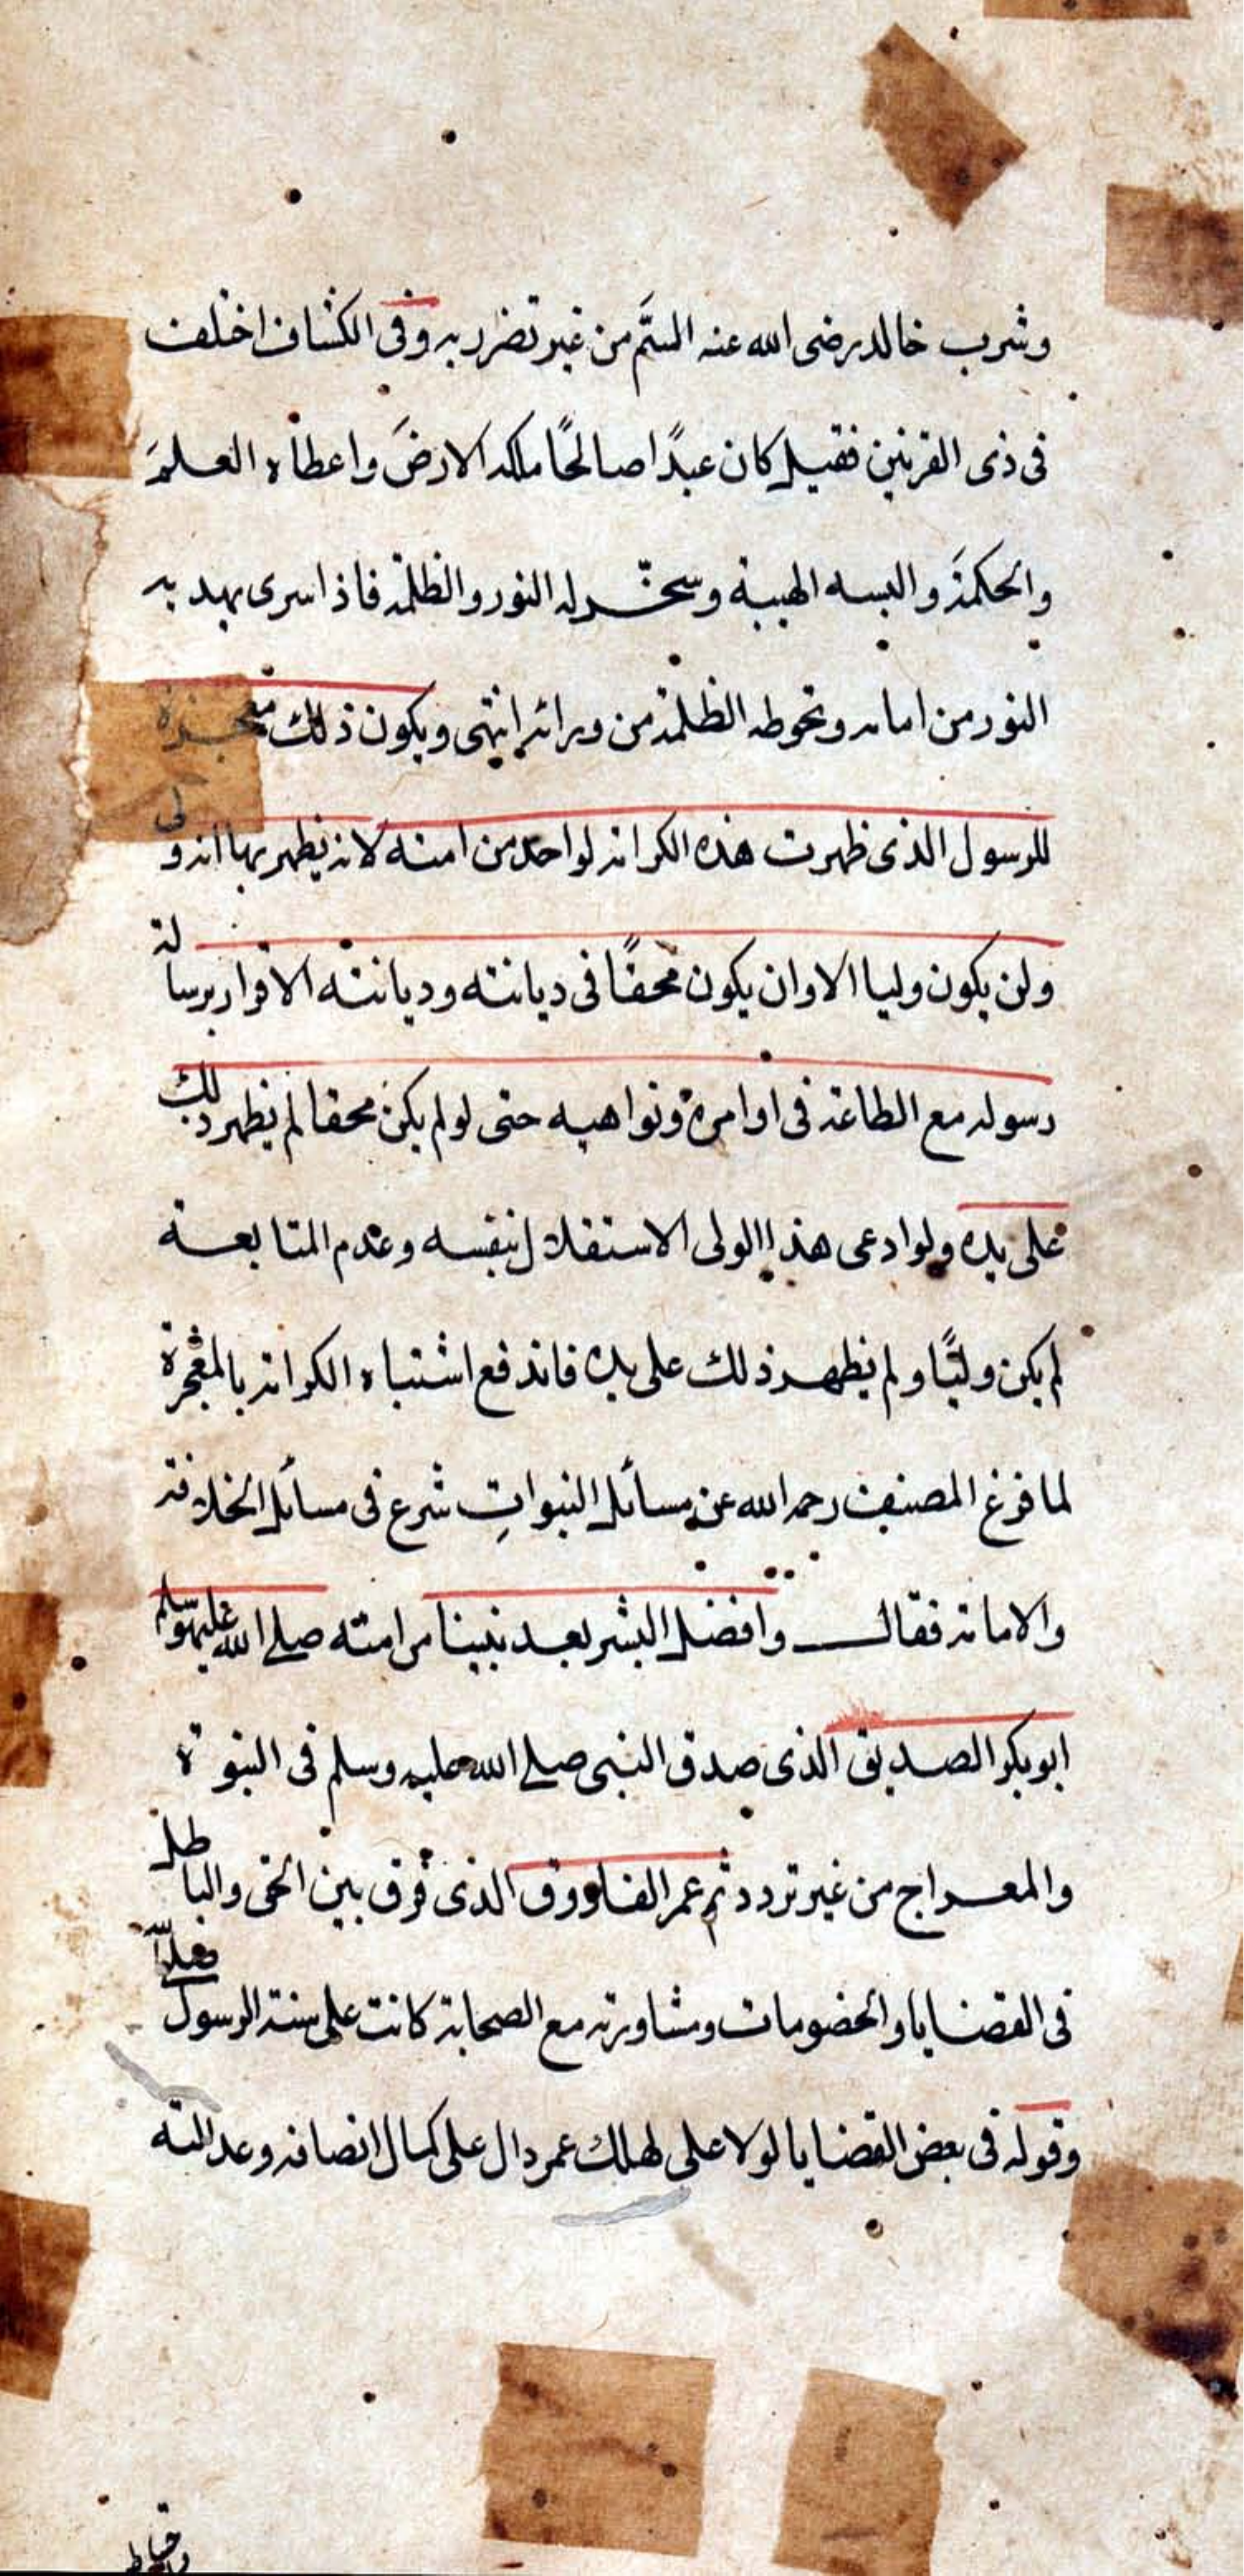 وشرب خالد رضى الله عنه السمّ من غير تضرر به وفى الكشاف اختلف
فى ذى القرنين فقيل كان عبدًا صالحًا ملكه الارضَ واعطاه العلمَ
والحكمةَ والبسه الهيبة وسخّر له النور والظلمة فاذا سرى يهديه
النور من امامه وتحوطه الظلمة من ورائه انتهى ويكون ذلك معجزة
للرسول الذى ظهرت هذه الكرامة لواحد من امته لانه يظهر بها انه ولى
ولن يكون وليا الا وان يكون محقًا فى ديانته وديانته الاقرار برسالة
رسوله مع الطاعة فى اوامره ونواهيه حتى لو لم يكن محقا لم يظهر ذلك
على يده ولو ادعى هذا الولى الاستقلال بنفسه وعدم المتابعة
لم يكن وليًا ولم يظهر ذلك على يده فاندفع اشتباه الكرامة بالمعجزة
لما فرغ المصنف رحمه الله عن مسائل النبواتِ شرع فى مسائل الخلافة
والامامة فقال وافضل البشر بعد نبينا من امته صلى الله عليه وسلم
ابو بكر الصديق الذى صدق النبى صلى الله عليه وسلم فى النبوة
والمعراج من غير تردد ثم عمر الفاروق الذى فرق بين الحق والباطل
فى القضايا والخصومات ومشاورته مع الصحابة كانت على سنة الرسول
وقوله فى بعض القضايا لولا على لهلك عمر دال على كمال انصافه وعدالته